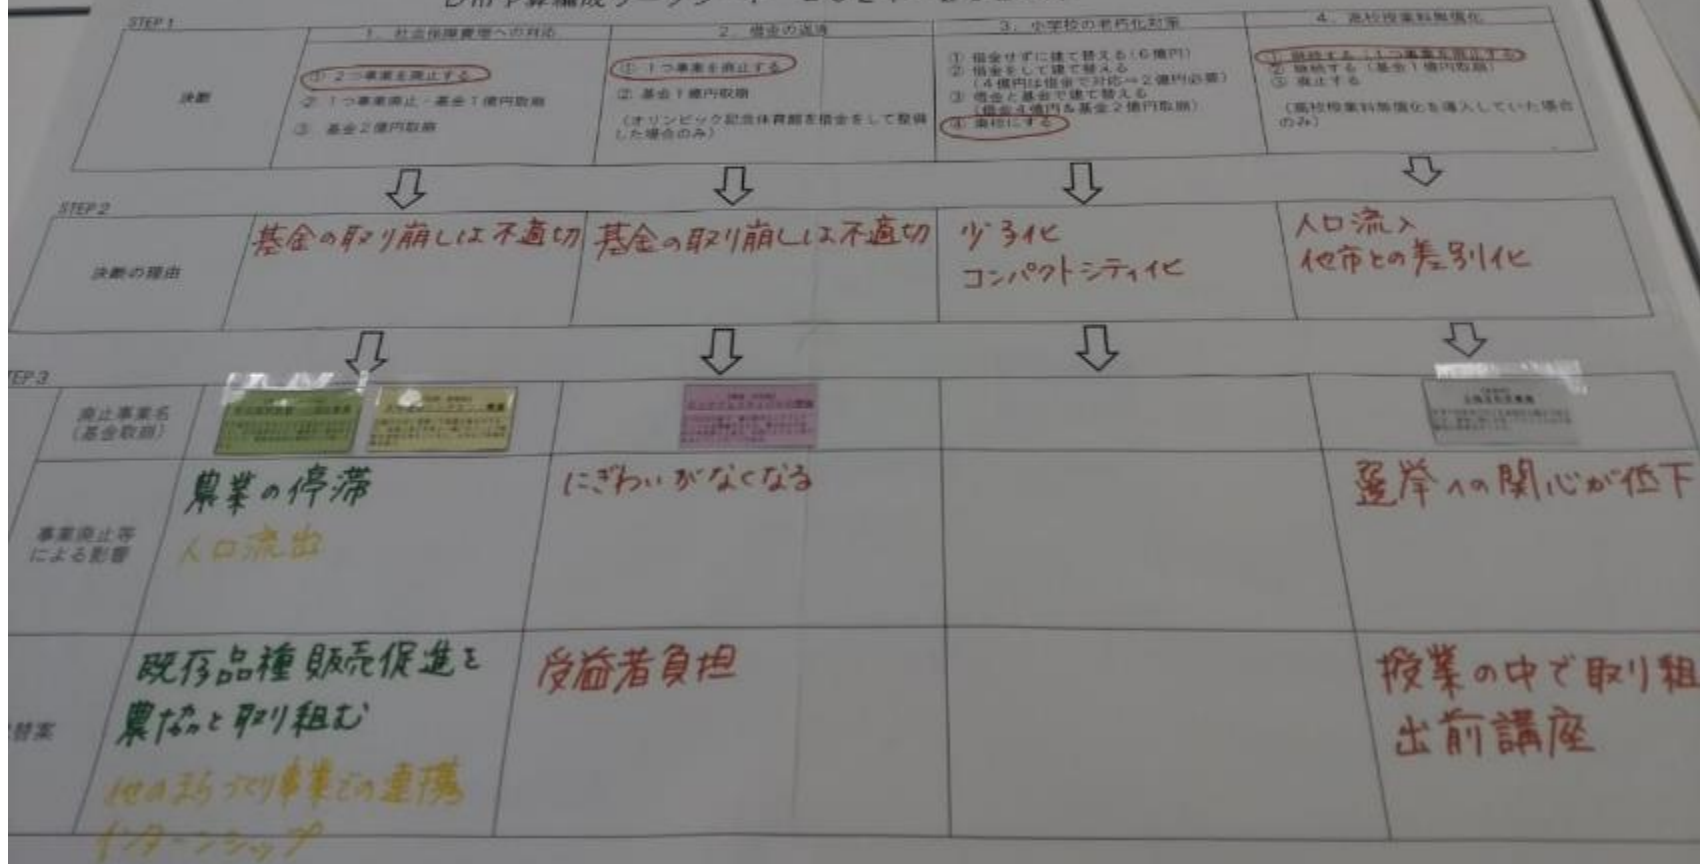 STEP 1
1. 社会保障費増への対応
2. 借金の返済
3. 小学校の老朽化対策
4. 高校授業料無償化
決断
① 2つ事業を廃止する
② 1つ事業廃止・基金1億円取崩
③ 基金2億円取崩
① 1つ事業を廃止する
② 基金1億円取崩
(オリンピック記念体育館を借金をして整備
した場合のみ)
① 借金せずに建て替える(6億円)
② 借金をして建て替える
(4億円は借金で対応→2億円必要)
③ 借金と基金で建て替える
(借金4億円&基金2億円取崩)
④ 廃校にする
① 継続する(1つ事業を廃止する)
② 継続する(基金1億円取崩)
③ 廃止する
(高校授業料無償化を導入していた場合
のみ)
STEP 2
決断の理由
基金の取り崩しは不適切
基金の取り崩しは不適切
少子化
コンパクトシティ化
人口流入
他市との差別化
TEP 3
廃止事業名
(基金取崩)
事業廃止等
による影響
農業の停滞
人口流出
にぎわいがなくなる
選挙への関心が低下
替案
既存品種販売促進を
農協と取り組む
他のまちづくり事業との連携
インターンシップ
受益者負担
授業の中で取り組
出前講座